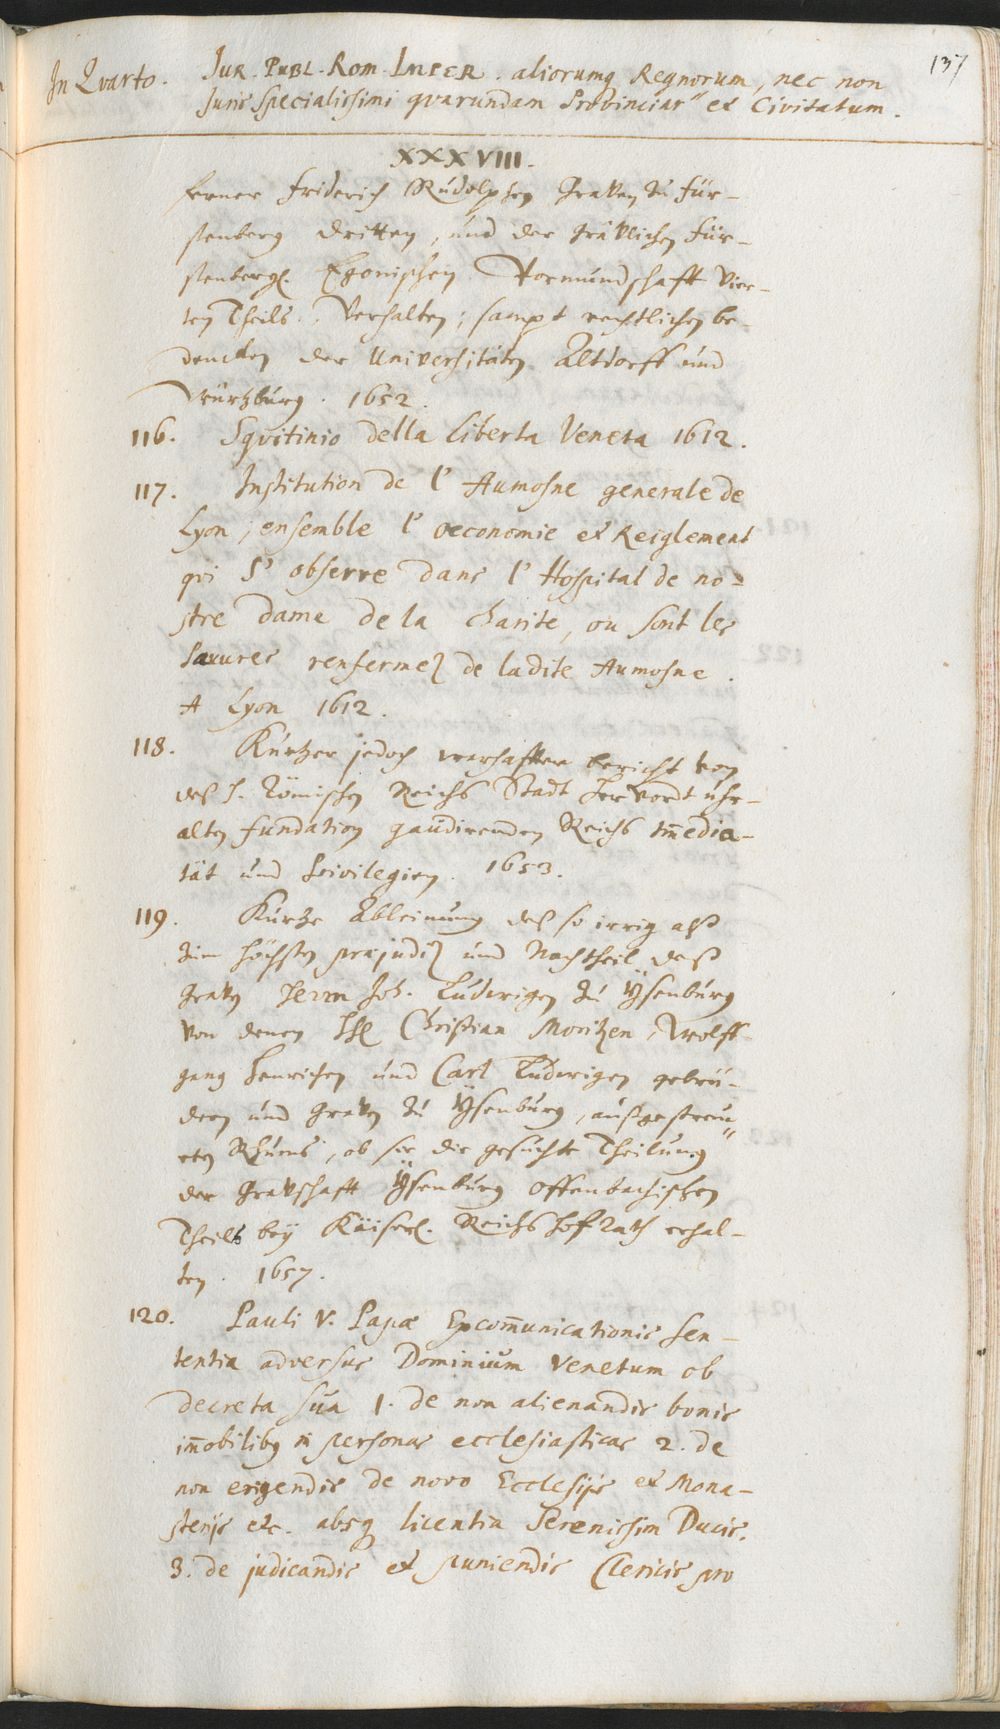 137
In Qvarto. JUR. PUBL. Rom. IMPER. aliorumq Regnorum, nec non
Juris specialissimi qvarundam Provinciar" et Civitatum.
XXXVIII.
ferner Friderich Rudolphen Graven zu Für-
stenberg dritten, und der Grävlichen Für-
stenbergl. Egonischen Vormundschafft Vier-
ten Theils. Verhalten; sampt rechtlichen be-
dencken der Universitäten Altdorff und
Würtzburg. 1652.
116. Sqvitinio della Liberta Veneta 1612.
117. Institution de l' Aumosne generale de
Lyon, ensemble l' oeconomie et Reiglement
qvi s' observe dans l' Hospital de no-
stre dame de la charite, ou sont les
pauvres renfermez de ladite Aumosne.
A Lyon 1612.
118. Kurtzer jedoch warhaffter bericht von
deß H. Römischen Reichs Stadt Hervordt uhr-
alten fundation gaudirenden Reichs Im̄edia-
tät und Privilegien. 1653.
119. Kurtze Ableinung deß so irrig alß
zum höchsten præjudiz und Nachtheil deß
Graven Herrn Joh. Ludwigen zu Ysenburg
von denen HH. Christian Moritzen, Wolff-
gang Henrichen und Carl Ludwigen gebrü-
dern und Graven zu Ysenburg, außgestreu-
eten Rhums, ob sie die gesuchte Theilung
der Gravschafft Ysenburg Offenbachischen
Theils bey Käiserl. Reichs Hof Rath erhal-
ten. 1657.
120. Pauli V. Papæ Excom̄unicationis sen-
tentia adversus Dominium Venetum ob
decreta sua 1. de non alienandis bonis
im̄obilibq in personas ecclesiasticas 2. de
non erigendis de novo Ecclesijs et Mona-
sterijs etc. absq licentia Serenissim Ducis.
3. de judicandis et puniendis Clericis pro